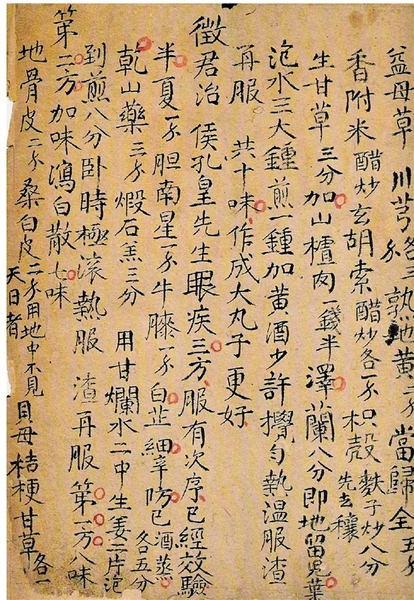 益母草 川芎各二 熟地黄一 當歸全五
香附米醋炒 玄胡索醋炒各一 枳殼麩子炒八分先去穰
生甘草三分 加山楂肉一錢半 澤蘭八分即地留兒葉
泡水三大鍾煎一鍾加黄酒少許攪勻熱温服渣
再服 共十味 作成大丸子更好
徵君治侯孔皇先生眼疾三方服有次序已經效驗
半夏一 胆南星一 牛膝一 白芷 細辛 防已酒蒸各五分
乾山藥三 煅石羔三分 用甘爛水二中生姜二片泡
到煎八分卧時極滚熱服渣再服 第一方八味
第二方加味瀉白散七味
地骨皮二 桑白皮二 用地中不見天日者 貝母 桔梗 甘草各一